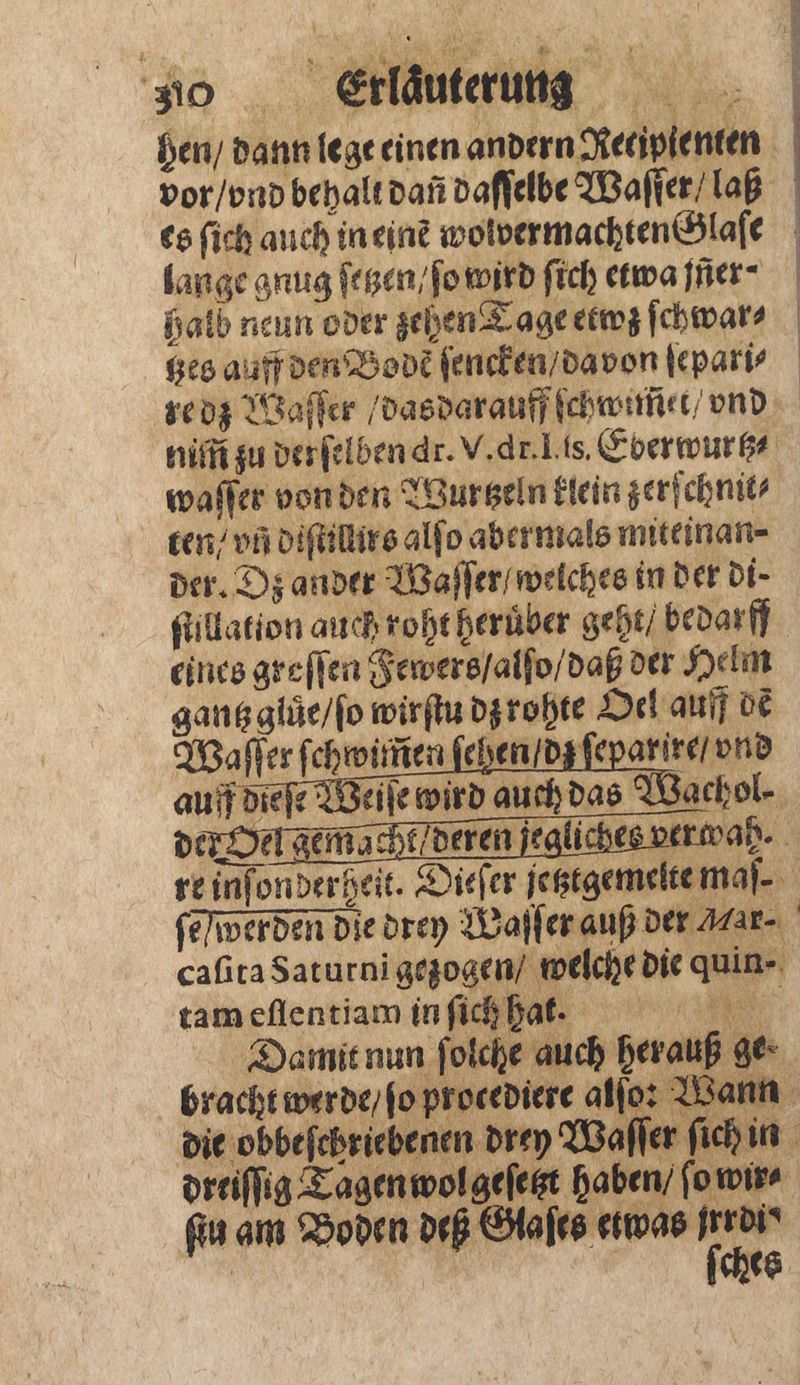 310 Erläuterung
hen/ dann lege einen andern Recipienten
vor/vnd behalt dañ dasselbe Wasser/ laß
es sich auch in einē wolvermachten Glase
lange gnug setzen/ so wird sich etwa jñer-
halb neun oder zehen Tage etwz schwar-
tzes auff den Bodē sencken/davon separi-
re dz Wasser /das darauff schwim̃et/ vnd
nim̃ zu derselben dr. V. dr. I. ts. Eberwurtz-
wasser von den Wurtzeln klein zerschnit-
ten/ vñ distillirs also abermals miteinan-
der. Dz ander Wasser/welches in der di-
stillation auch roht herüber geht/ bedarff
eines grossen Fewers/also/daß der Helm
gantz glüe/so wirstu dz rohte Oel auff dē
Wasser schwim̃en sehen/dz separire/ vnd
auff diese Weise wird auch das Wachol-
der Oel gemacht/deren jegliches verwah-
re insonderheit. Dieser jetztgemelte mas-
se/werden die drey Wasser auß der Mar-
casita Saturni gezogen/ welche die quin-
tam essentiam in sich hat.
Damit nun solche auch herauß ge-
bracht werde/so procediere also: Wann
die obbeschriebenen drey Wasser sich in
dreissig Tagen wol gesetzt haben/ so wir-
stu am Boden deß Glases etwas jrrdi-
sches